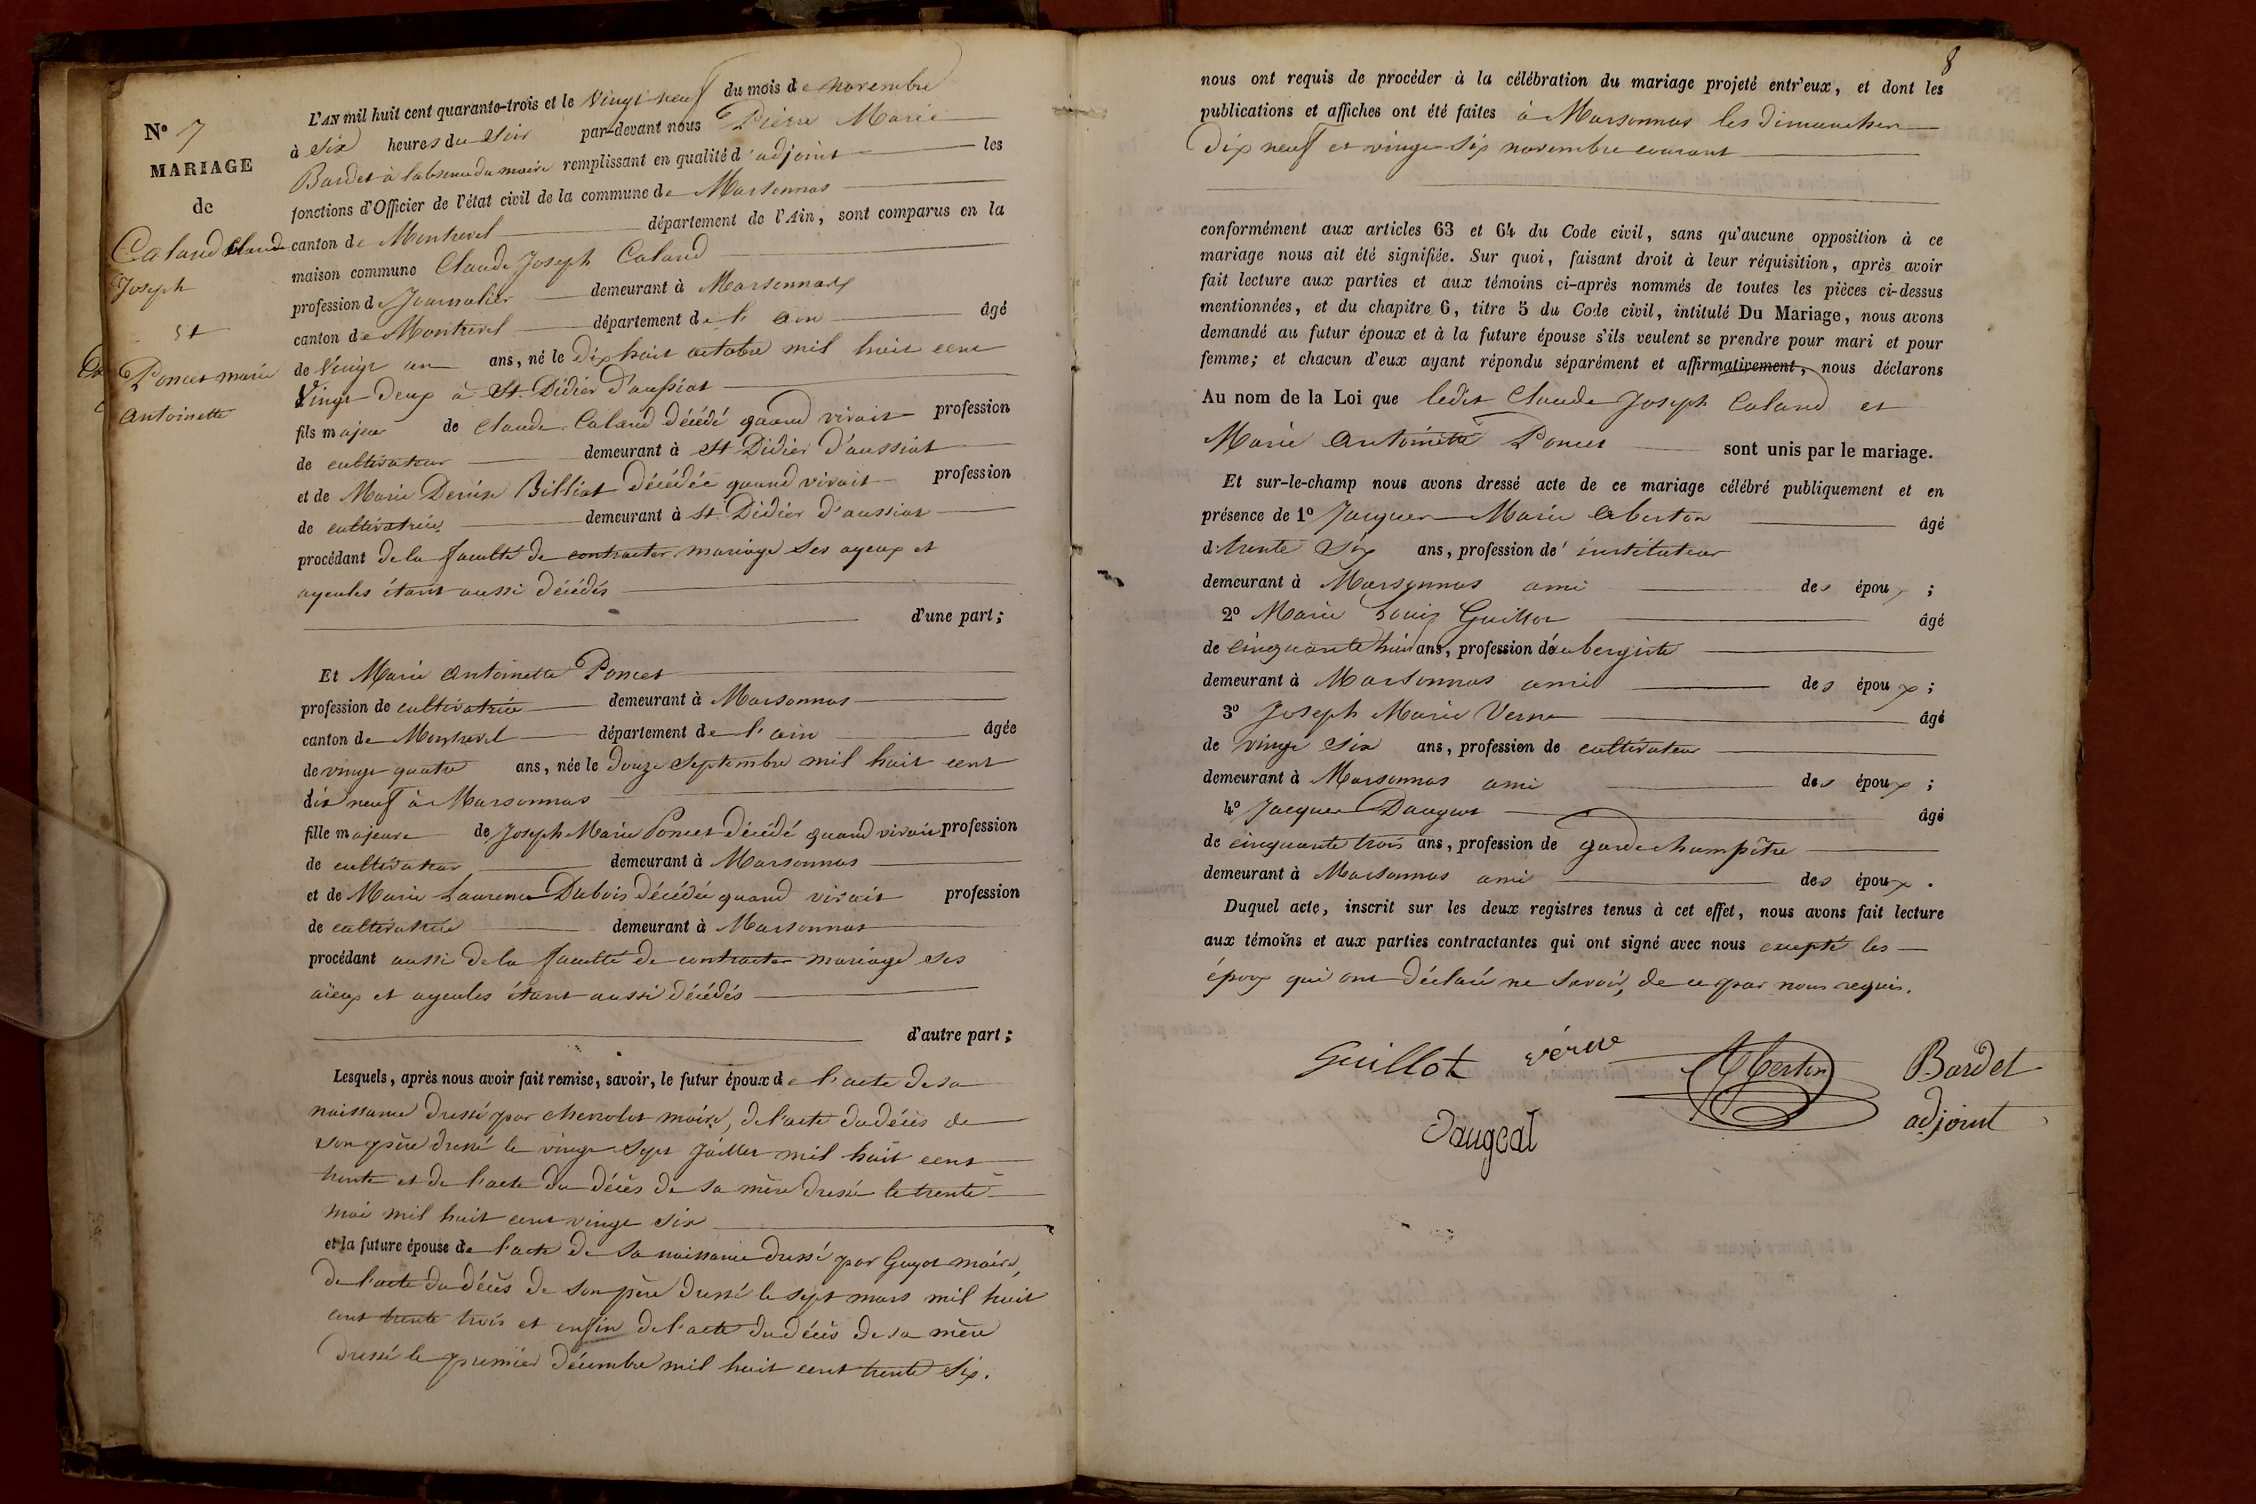 N° 7
MARIAGE
de
Caland Claude
Joseph
et
Poncet marie
antoinette
L'AN mil huit cent quarante-trois et le vingt neuf du mois de novembre
à six heures du soir par-devant nous Pierre Marie
Bardet à l'absence du maire remplissant en qualité d'adjoint les
fonctions d'Officier de l'état civil de la commune de Marsonnas
canton de Montrevel département de l'Ain, sont comparus en la
maison commune Claude Joseph Caland
profession de Journalier demeurant à Marsonnas
canton de Montrevel département de l'ain âgé
de vingt un ans, né le dix huit octobre mil huit cent
vingt deux à St Didier d'aussiat
fils majeur de Claude Caland décédé quand vivait profession
de cultivateur demeurant à St Didier d'aussiat
et de Marie Denise Billiat décédée quand vivait profession
de cultivatrice demeurant à St Didier d'aussiat
procédant de la faculté de contracter mariage ses ayeux et
ayeules étant aussi décédés
d'une part;
Et Marie antoinette Poncet
profession de cultivatrice demeurant à Marsonnas
canton de Montrevel département de l'ain âgée
de vingt quatre ans, née le douze septembre mil huit cent
dix neuf à Marsonnas
fille majeure de Joseph Marie Poncet décédé quand vivait profession
de cultivateur demeurant à Marsonnas
et de Marie Laurence Dubois décédée quand vivait profession
de cultivatrice demeurant à Marsonnas
procédant aussi de la faculté de contracter mariage ses
aïeux et ayeules étant aussi décédés
d'autre part;
Lesquels, après nous avoir fait remise, savoir, le futur époux de l'acte de sa
naissance dressé par chevrolot maire, de l'acte du décès de
son père dressé le vingt sept Juillet mil huit cent
trente et de l'acte du décès de sa mère dressé le trente
mai mil huit cent vingt six
et la future épouse de l'acte de sa naissance dressé par Guyot maire,
de l'acte du décès de son père dressé le sept mars mil huit
cent trente trois et enfin de l'acte du décès de sa mère
dressé le premier décembre mil huit cent trente six.
8
nous ont requis de procéder à la célébration du mariage projeté entr'eux, et dont les
publications et affiches ont été faites à Marsonnas les dimanches
dix neuf et vingt six novembre courant
conformément aux articles 63 et 64 du Code civil, sans qu'aucune opposition à ce
mariage nous ait été signifiée. Sur quoi, faisant droit à leur réquisition, après avoir
fait lecture aux parties et aux témoins ci-après nommés de toutes les pièces ci-dessus
mentionnées, et du chapitre 6, titre 5 du Code civil, intitulé Du Mariage, nous avons
demandé au futur époux et à la future épouse s'ils veulent se prendre pour mari et pour
femme; et chacun d'eux ayant répondu séparément et affirmativement, nous déclarons
Au nom de la Loi que ledit Claude Joseph Caland et
Marie antoinette Poncet sont unis par le mariage.
Et sur-le-champ nous avons dressé acte de ce mariage célébré publiquement et en
présence de 1° Jacques Marie Aberton âgé
de trente six ans, profession de instituteur
demeurant à Marsonnas ami des époux;
2° Marie Louis Guillot âgé
de cinquante huit ans, profession d'aubergiste
demeurant à Marsonnas ami des époux;
3° Joseph Marie Verne âgé
de vingt six ans, profession de cultivateur
demeurant à Marsonnas ami des époux;
4° Jacques Daugeat âgé
de cinquante trois ans, profession de garde champêtre
demeurant à Marsonnas ami des époux.
Duquel acte, inscrit sur les deux registres tenus à cet effet, nous avons fait lecture
aux témoins et aux parties contractantes qui ont signé avec nous excepté les
époux qui ont déclaré ne savoir, de ce par nous requis.
Guillot verne Aberton Bardet
Daugeat adjoint